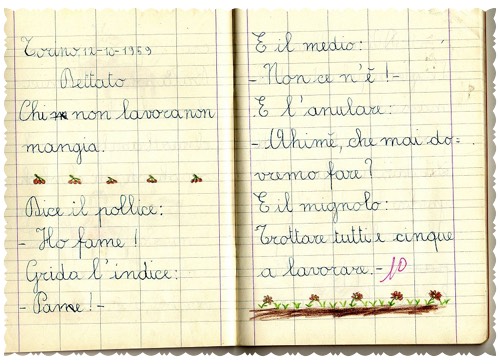 Torino, 12-10-1959
Dettato
Chi non lavora non
mangia.
Dice il pollice:
- Ho fame!
Grida l'indice:
- Pane! -
E il medio:
- Non ce n'è! -
E l'anulare:
- Ahimè, che mai do=
vremo fare?
E il mignolo:
Trottare tutti e cinque
a lavorare. - 10